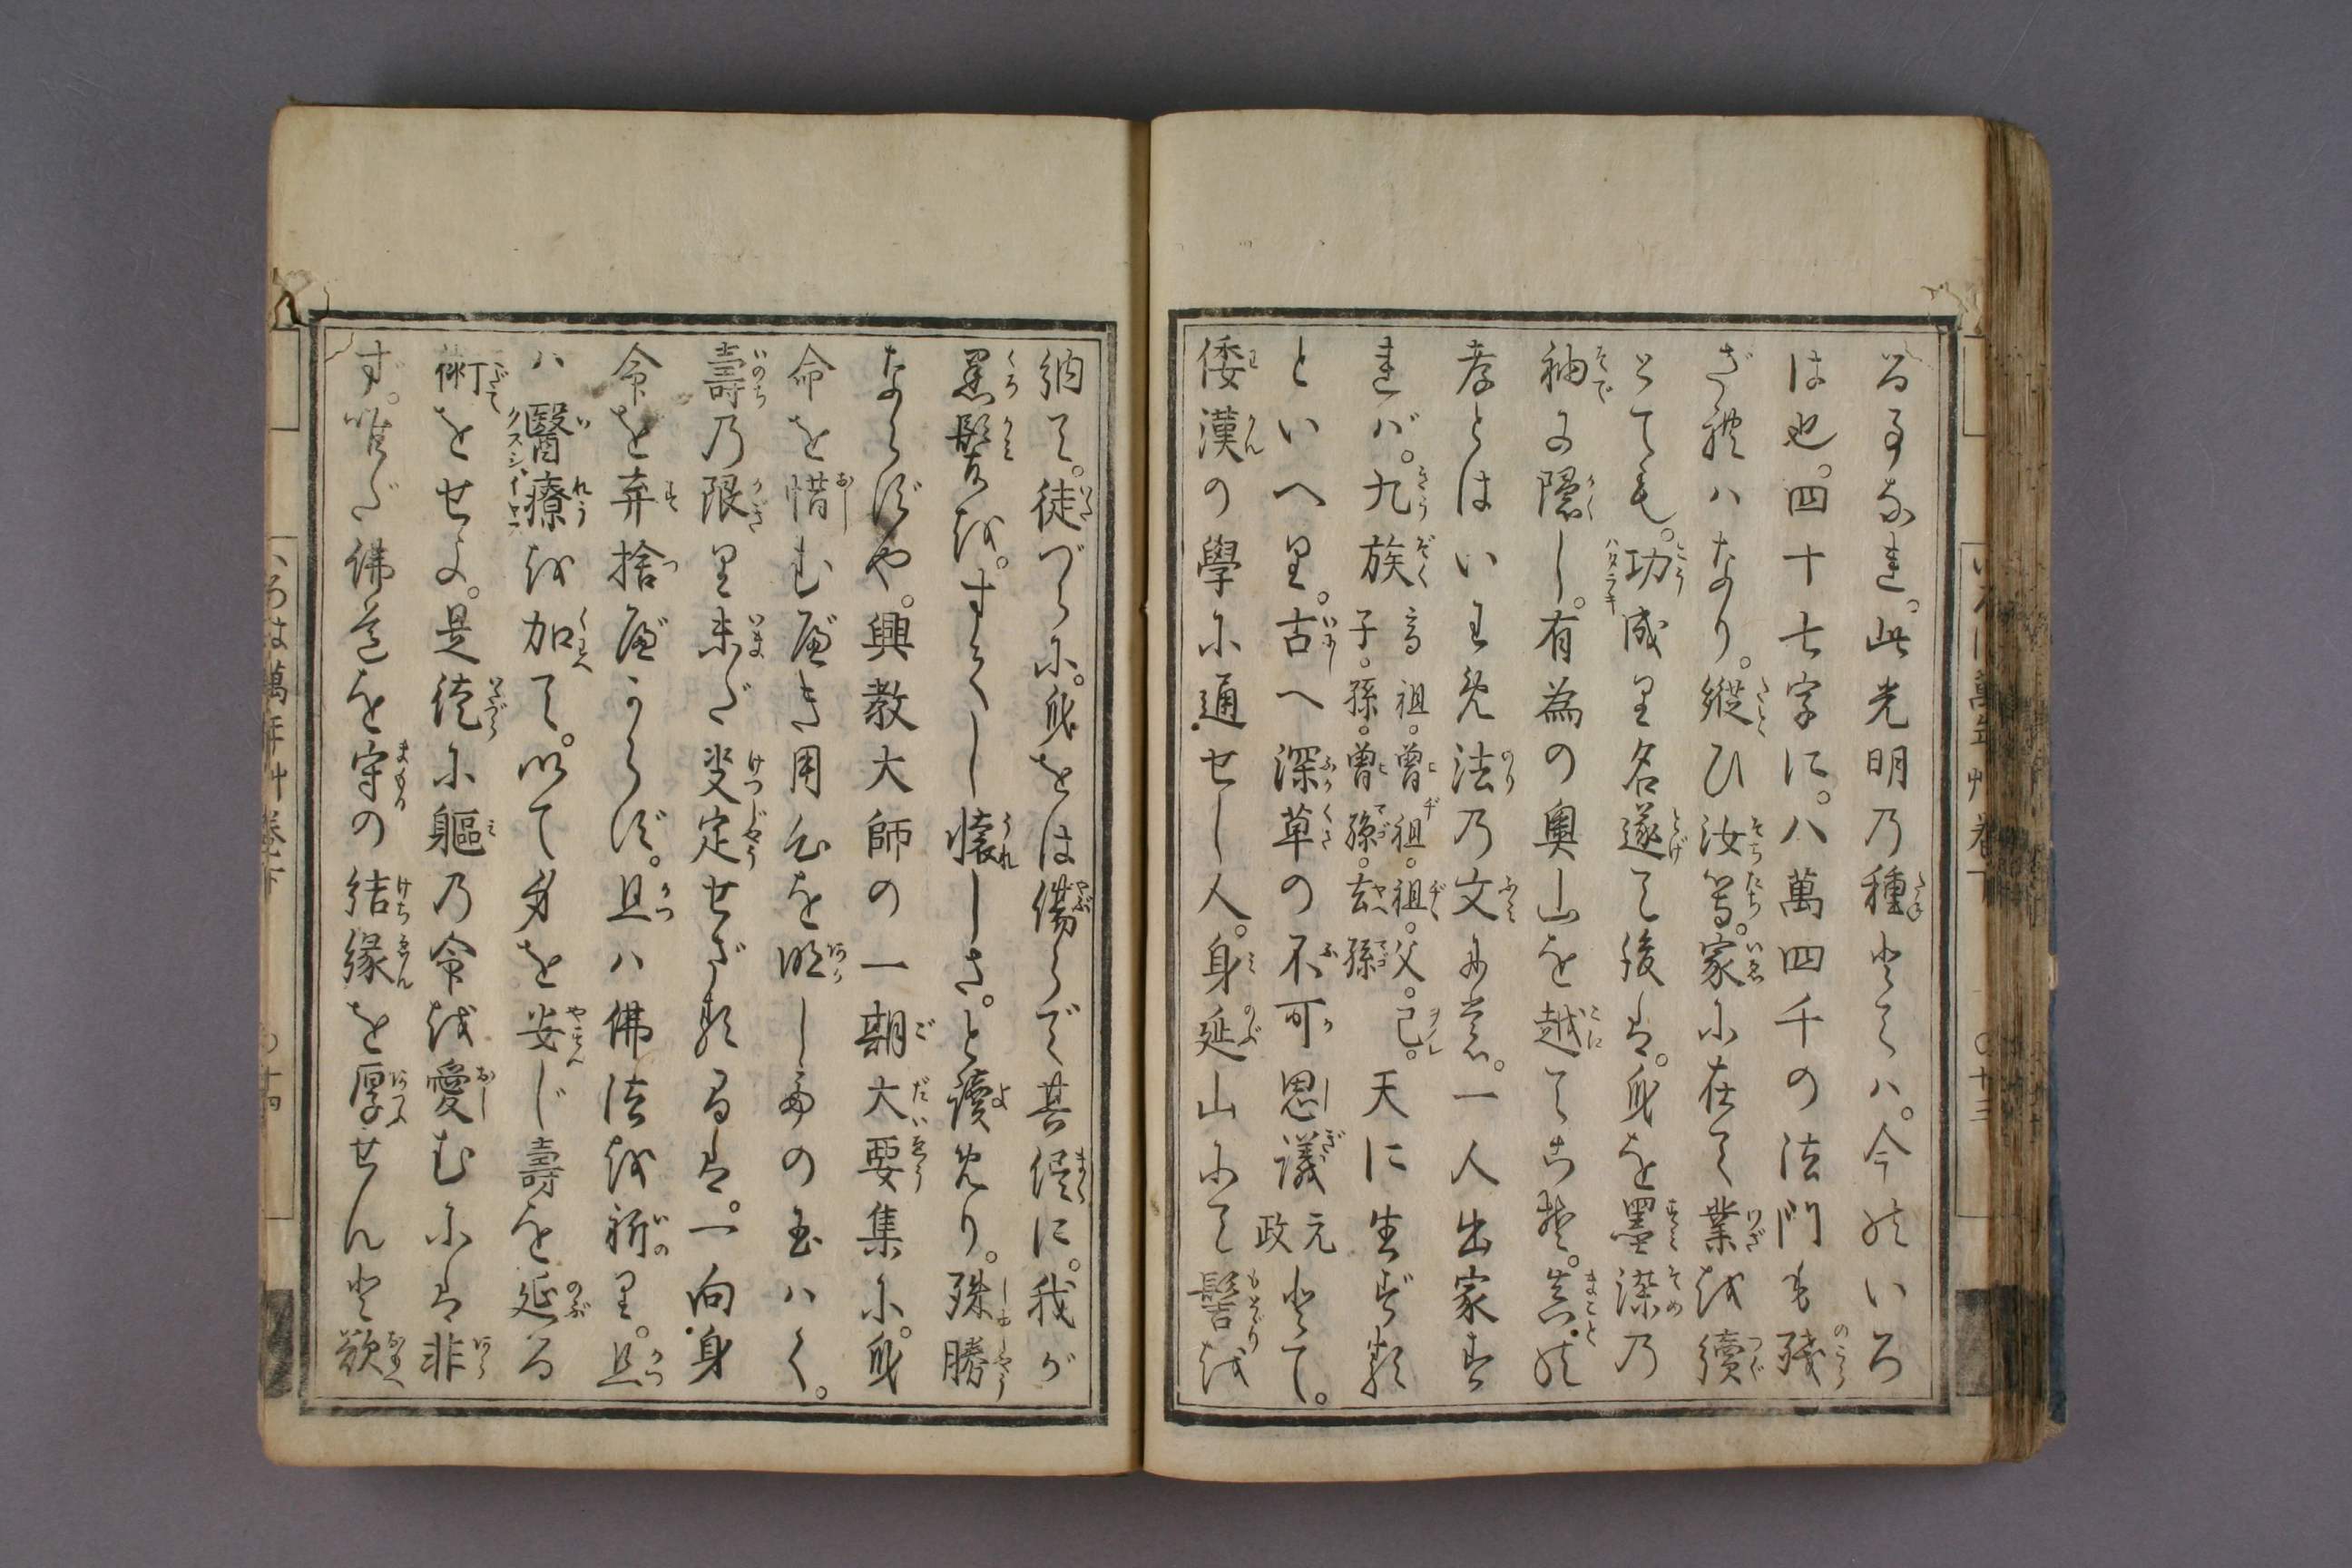 る事なれ。此光明乃種とては。今のいろ
は也。四十七字に。八萬四千の法門も残
ざればなり。縦ひ汝等。家に在て業を續
とても。功成り名遂て後は。身を墨染乃
袖に隠し。有為の奥山を越てこそ。真の
孝とはいはめ法乃文に云。一人出家す
れバ。九族高祖。曾祖。祖。父。己。子。孫。曾孫。玄孫天に生ず類
といへり。古へ深草の不可思議元政とて。
倭漢の學に通せし人。身延山にて髻を
納て。徒づらに。身をは傷らで其侭に。我が
黒髪を。すてし懐しさ。と讀めり。殊勝
ならずや。興教大師の一期大要集に。身
命を惜むべき用心を明し宣の玉ハく。
壽乃限り未だ定せざるるは。一向身
命を弃捨べからず。且ハ佛法を祈り。且
ハ醫療を加て。以て身を安じ壽を延る
術をせよ。是徒に軀乃命を愛むには非
ず。唯だ佛道を守の結縁を厚せんと欲
いろは萬年艸 巻下
〇十三
〇十四